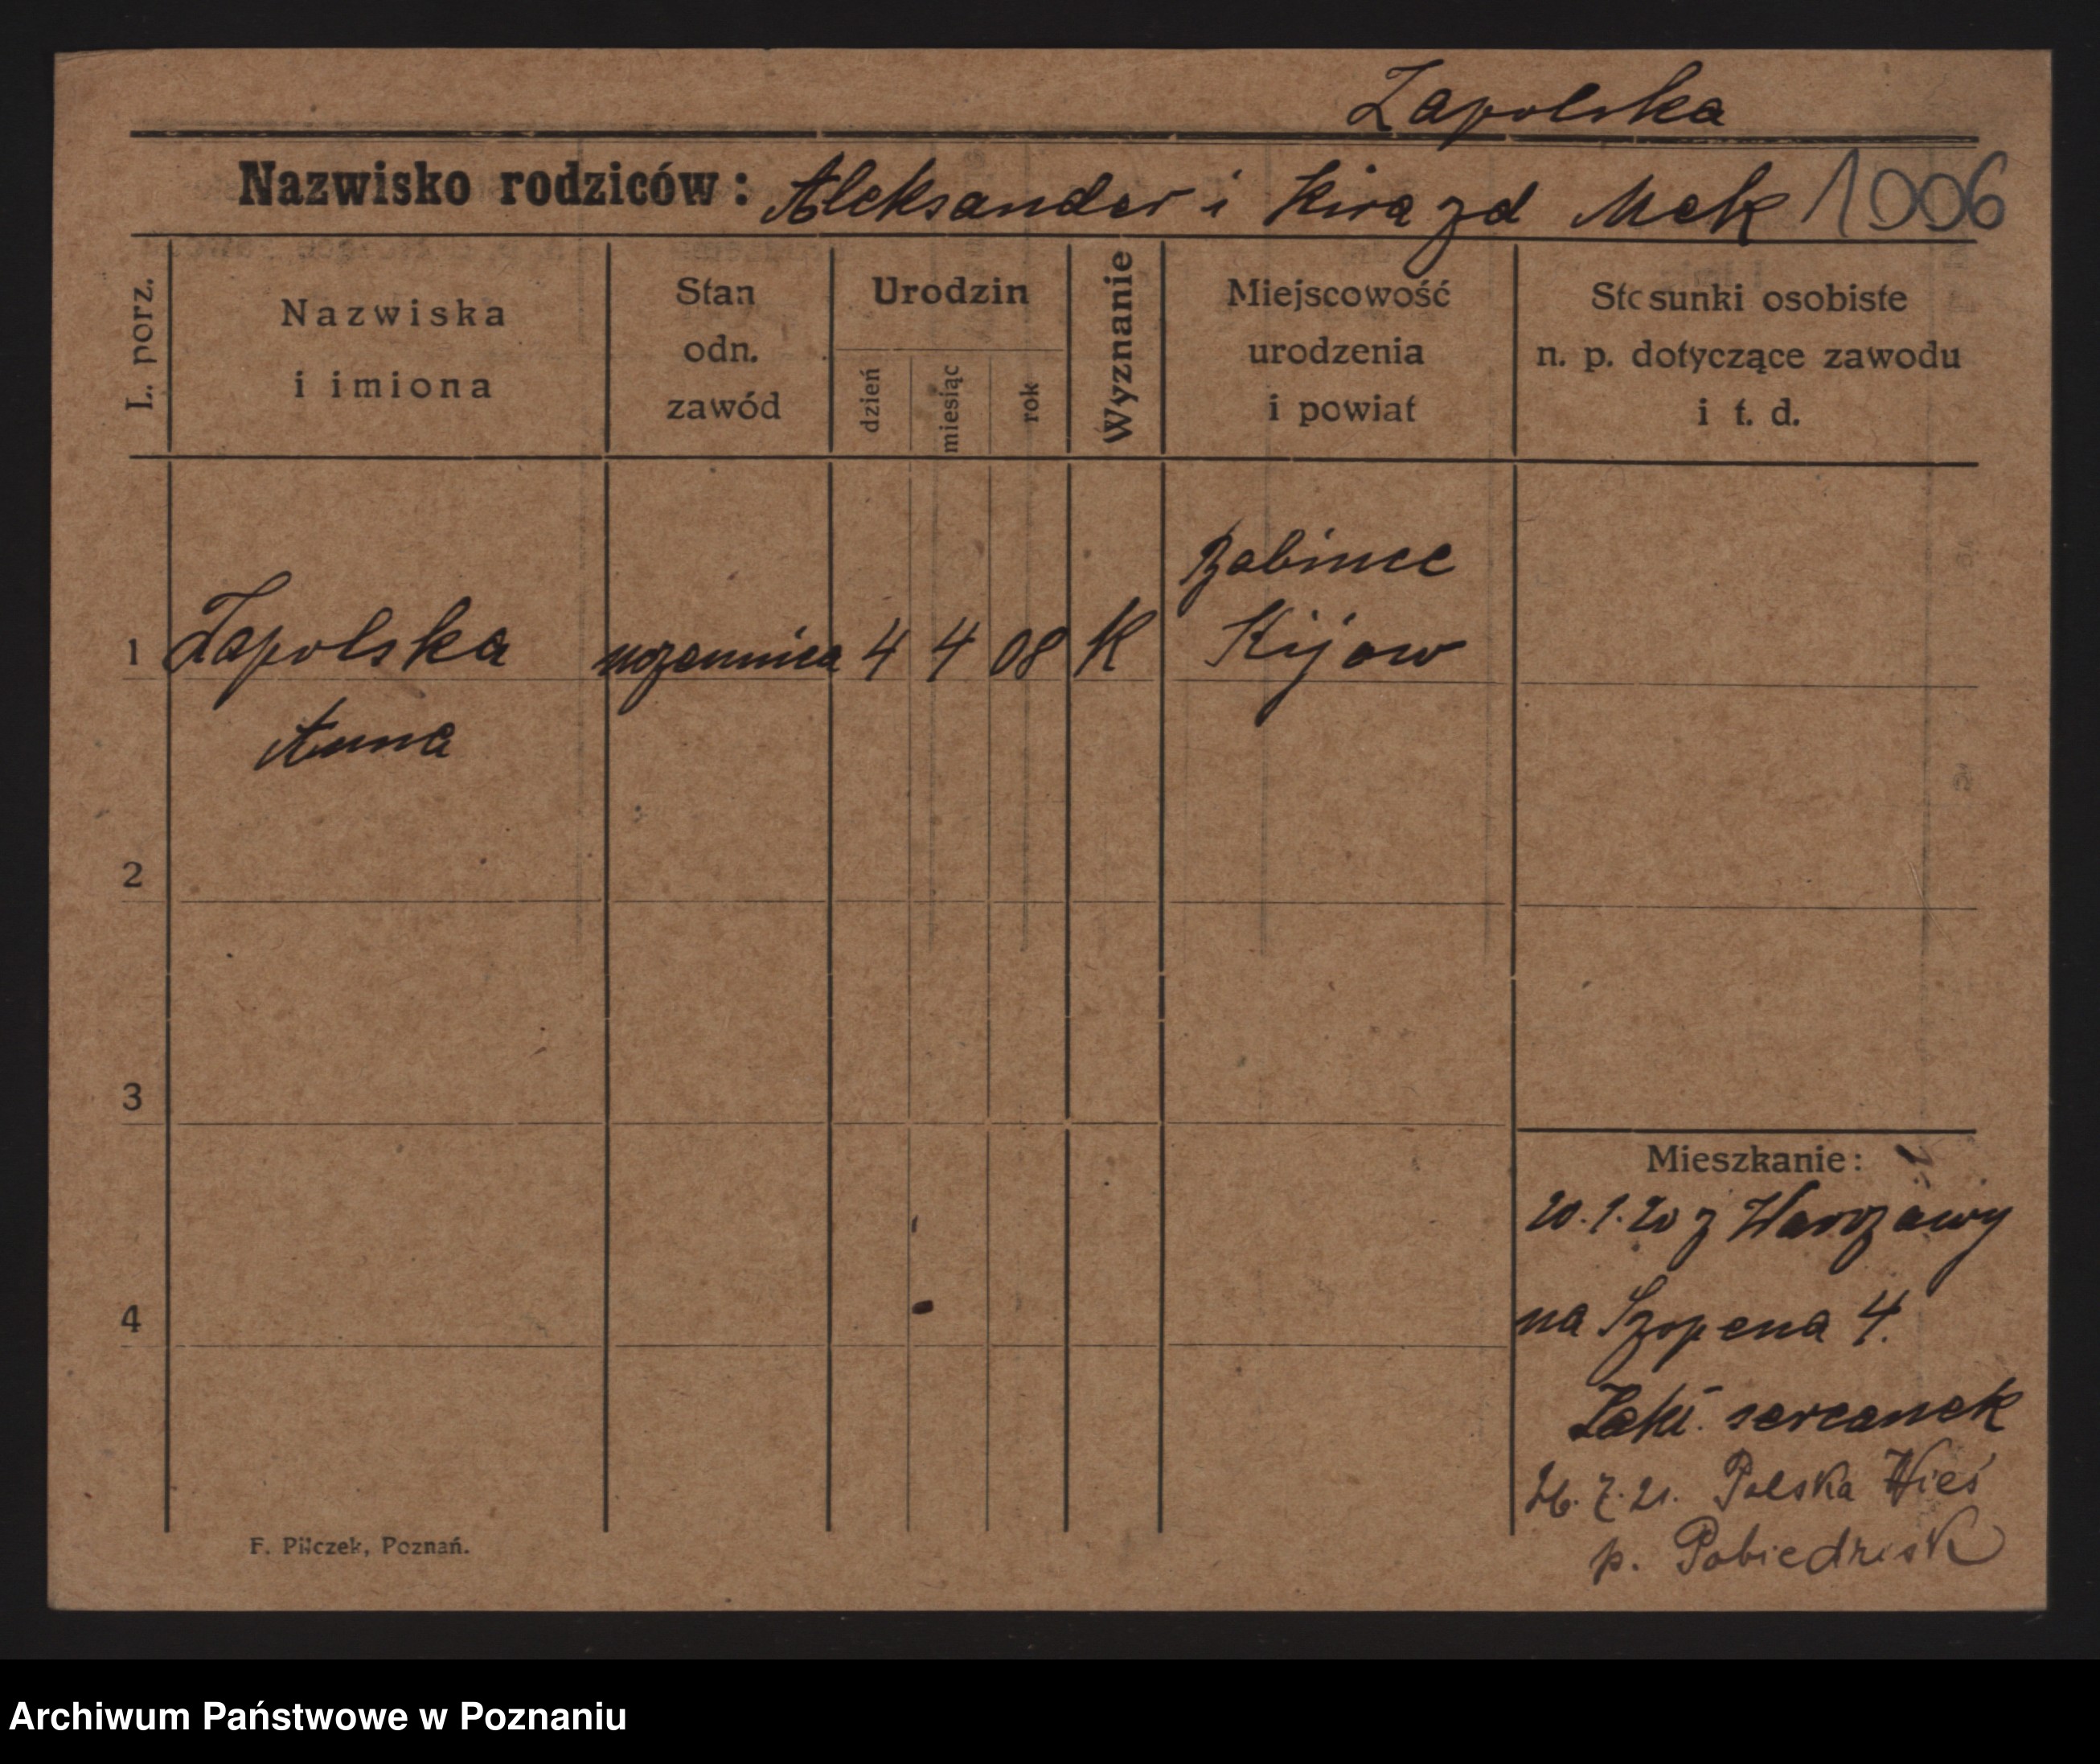 Zapolska
Nazwisko rodziców: Aleksander i Mek 1006
L. porz.
Nazwiska
i imiona
Stan
odn.
zawód
Urodzin
dzień
miesiąc
rok
Wyznanie
Miejscowość
urodzenia
i powiat
Stosunki osobiste
n. p. dotyczące zawodu
i t. d.
Babince
1 Zapolska uczennica 4 4 08 K Kijow
Anna
2
3
4
Mieszkanie:
20.1.20 z Warszawy
na Szopena 4.
Zakł. sercanek
26.7.21. Polska Wieś
p. Pobiedzisk
F. Pilczek, Poznań.
Archiwum Państwowe w Poznaniu